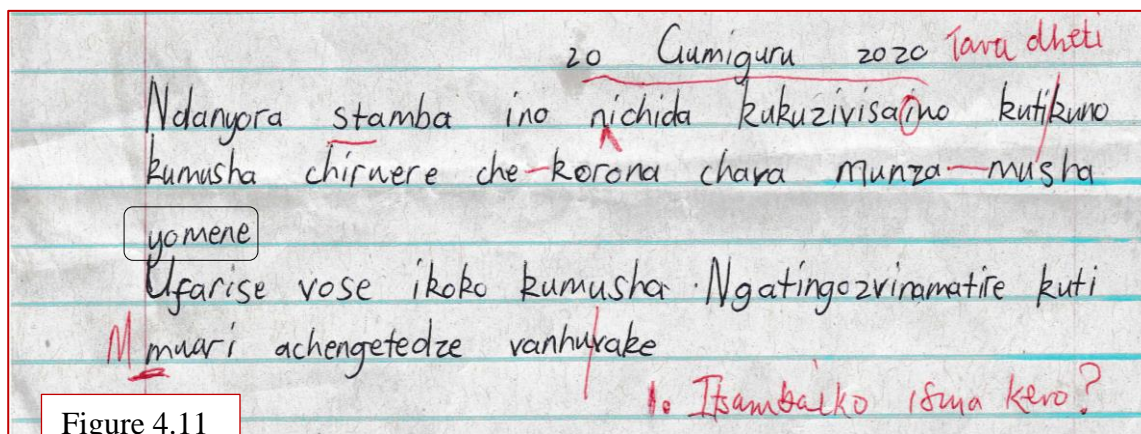 20 Gumiguru 2020 Tara dheti
Ndanyora stamba ino nichida kukuzivisaino kutikuno
kumusha chirwere che-korona chava munza-musha
yomene
Ufarise vose ikoko kumusha. Ngatingozvinamatire kuti
M muari achengetedze vanhuvake
1. Itsambaiko isina kero?
Figure 4.11